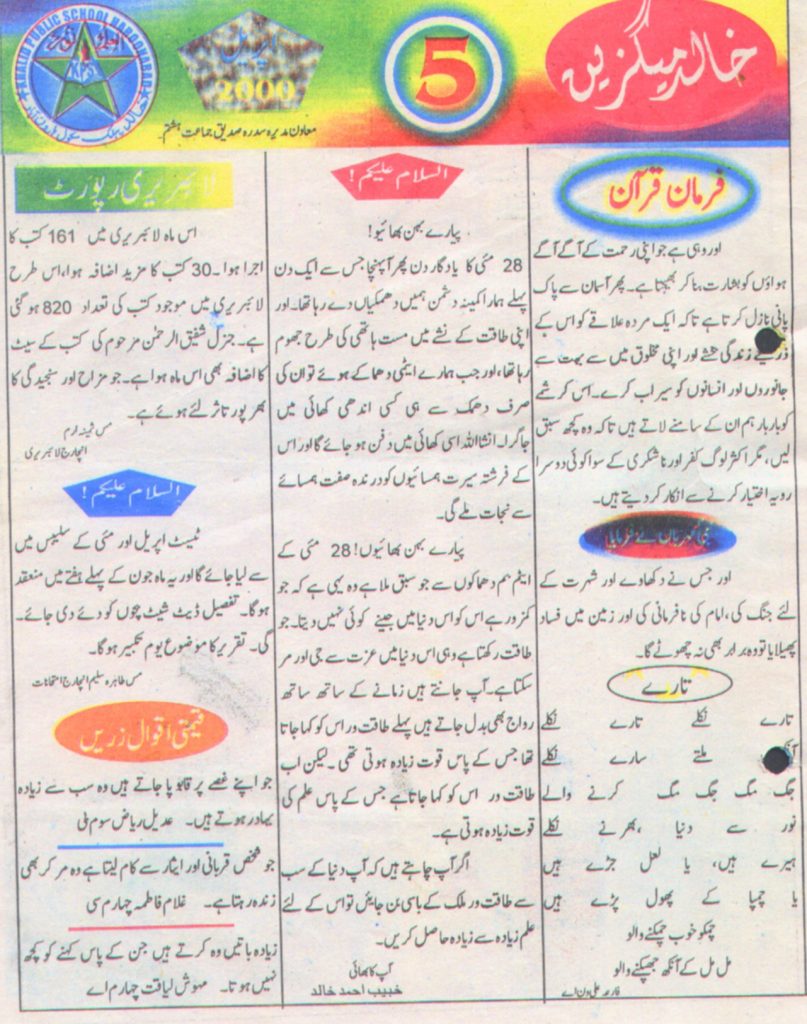 خالد میگزین
5
اپریل
2000
KHALID PUBLIC SCHOOL HAROONABAD
KPS
معاون مدیرہ سدرہ صدیق جماعت ہشتم۔
فرمان قرآن
اور وہی ہے جو اپنی رحمت کے آگے آگے
ہواؤں کو بشارت بنا کر بھیجتا ہے۔ پھر آسمان سے پاک
پانی نازل کرتا ہے تاکہ ایک مردہ علاقے کو اس کے
ذریعے زندگی بخشے اور اپنی مخلوق میں سے بہت سے
جانوروں اور انسانوں کو سیراب کرے۔ اس کرشمے
کو بار بار ہم ان کے سامنے لاتے ہیں تاکہ وہ کچھ سبق
لیں، مگر اکثر لوگ کفر اور ناشکری کے سوا کوئی دوسرا
رویہ اختیار کرنے سے انکار کر دیتے ہیں۔
نبی مہربان نے فرمایا
اور جس نے دکھاوے اور شہرت کے
لئے جنگ کی، امام کی نافرمانی کی اور زمین میں فساد
پھیلایا تو وہ برابر بھی نہ چھوٹے گا۔
تارے
تارے نکلے تارے نکلے
آنکھ ملتے سارے نکلے
جگ مگ جگ مگ کرنے والے
نور سے دنیا ،بھرنے نکلے
ہیرے ہیں، یا لعل جڑے ہیں
یا چمپا کے پھول پڑے ہیں
چمکو خوب چمکنے والو
مل مل کے آنکھ جھپکنے والو
علی ون اے
السلام علیکم!
پیارے بہن بھائیو!
28 مئی کا یادگار دن پھر آ پہنچا جس سے ایک دن
پہلے ہمارا کمینہ دشمن ہمیں دھمکیاں دے رہا تھا۔ اور
اپنی طاقت کے نشے میں مست ہاتھی کی طرح جھوم
رہا تھا، اور جب ہمارے ایٹمی دھماکے ہوئے تو ان کی
صرف دھمک سے ہی کسی اندھی کھائی میں
جاگرا۔ انشااللہ اسی کھائی میں دفن ہو جائے گا اور اس
کے فرشتہ سیرت ہمسائیوں کو درندہ صفت ہمسائے
سے نجات ملے گی۔
پیارے بہن بھائیوں! 28 مئی کے
ایٹم بم دھماکوں سے جو سبق ملا ہے وہ یہی ہے کہ جو
کمزور ہے اس کو اس دنیا میں جینے کوئی نہیں دیتا۔ جو
طاقت رکھتا ہے وہی اس دنیا میں عزت سے جی اور مر
سکتا ہے۔ آپ جانتے ہیں زمانے کے ساتھ ساتھ
رواج بھی بدل جاتے ہیں پہلے طاقت ور اس کو کہا جاتا
تھا جس کے پاس قوت زیادہ ہوتی تھی ۔ لیکن اب
طاقت ور اس کو کہا جاتا ہے جس کے پاس علم کی
قوت زیادہ ہوتی ہے۔
اگر آپ چاہتے ہیں کہ آپ دنیا کے سب
سے طاقت ور ملک کے باسی بن جایئں تو اس کے لئے
علم زیادہ سے زیادہ حاصل کریں۔
آپ کا بھائی
خبیب احمد خالد
لائبریری رپورٹ
اس ماہ لائبریری میں 161 کتب کا
اجرا ہوا ۔ 30 کتب کا مزید اضافہ ہوا، اس طرح
لائبریری میں موجود کتب کی تعداد 820 ہو گئی
ہے۔ جنرل شفیق الرحمٰن مرحوم کی کتب کے سیٹ
کا اضافہ بھی اس ماہ ہوا ہے۔ جو مزاح اور سنجیدگی کا
بھر پور تاثر لئے ہوئے ہے۔
مس ثمینہ ارم
انچارج لائبریری
السلام علیکم!
ٹیسٹ اپریل اور مئی کے سلیبس میں
سے لیا جائے گا اور یہ ماہ جون کے پہلے ہفتے میں منعقد
ہوگا۔ تفصیل ڈیٹ شیٹ بچوں کو دے دی جائے۔
گی۔ تقریر کا موضوع یوم تکبیر ہوگا۔
مس طاہرہ سلیم انچارج امتحانات
قیمتی اقوال زریں
جو اپنے غصے پر قابو پا جاتے ہیں وہ سب سے زیادہ
بہادر ہوتے ہیں۔ عدیل ریاض سوم بی
جو شخص قربانی اور ایثار سے کام لیتا ہے وہ مر کر بھی
زندہ رہتا ہے۔ غلام فاطمہ چہارم سی
زیادہ باتیں وہ کرتے ہیں جن کے پاس کہنے کو کچھ
نہیں ہوتا۔ مہوش لیاقت چہارم اے